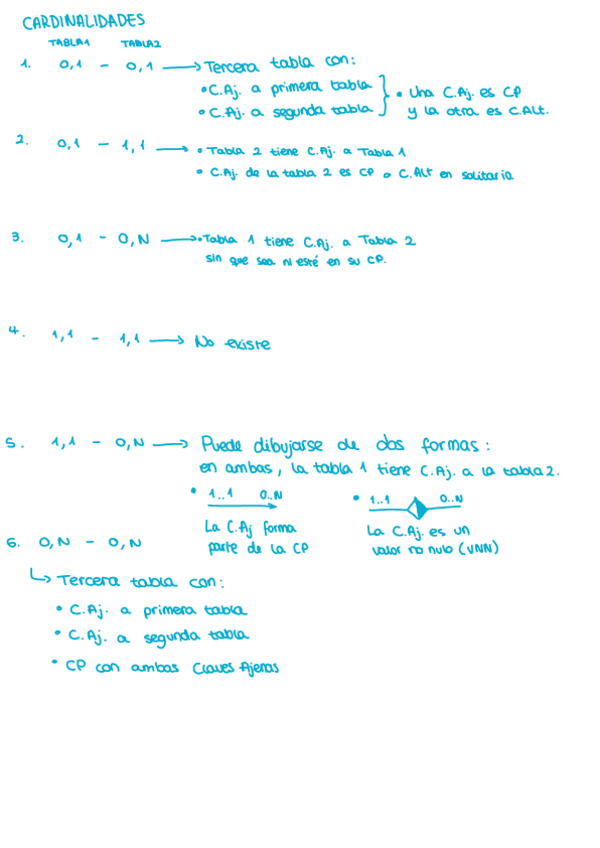 CARDINALIDADES
TABLA1 TABLA2
1. 0,1 - 0,1 → Tercera tabla con:
• C.Aj. a primera tabla
• C.Aj. a segunda tabla
• Una C.Aj. es CP
y la otra es C.Alt.
2. 0,1 - 1,1 → • Tabla 2 tiene C.Aj. a Tabla 1
• C.Aj. de la tabla 2 es CP o C.Alt en solitaria
3. 0,1 - 0,N → • Tabla 1 tiene C.Aj. a Tabla 2
sin que sea ni esté en su CP.
4. 1,1 - 1,1 → No existe
5. 1,1 - 0,N → Puede dibujarse de dos formas:
en ambas, la tabla 1 tiene C.Aj. a la tabla 2.
• 1..1 0..N
La C.Aj forma
parte de la CP
• 1..1 0..N
La C.Aj. es un
valor no nulo (VNN)
6. 0,N - 0,N
↳ Tercera tabla con:
• C.Aj. a primera tabla
• C.Aj. a segunda tabla
• CP con ambas Claves Ajenas